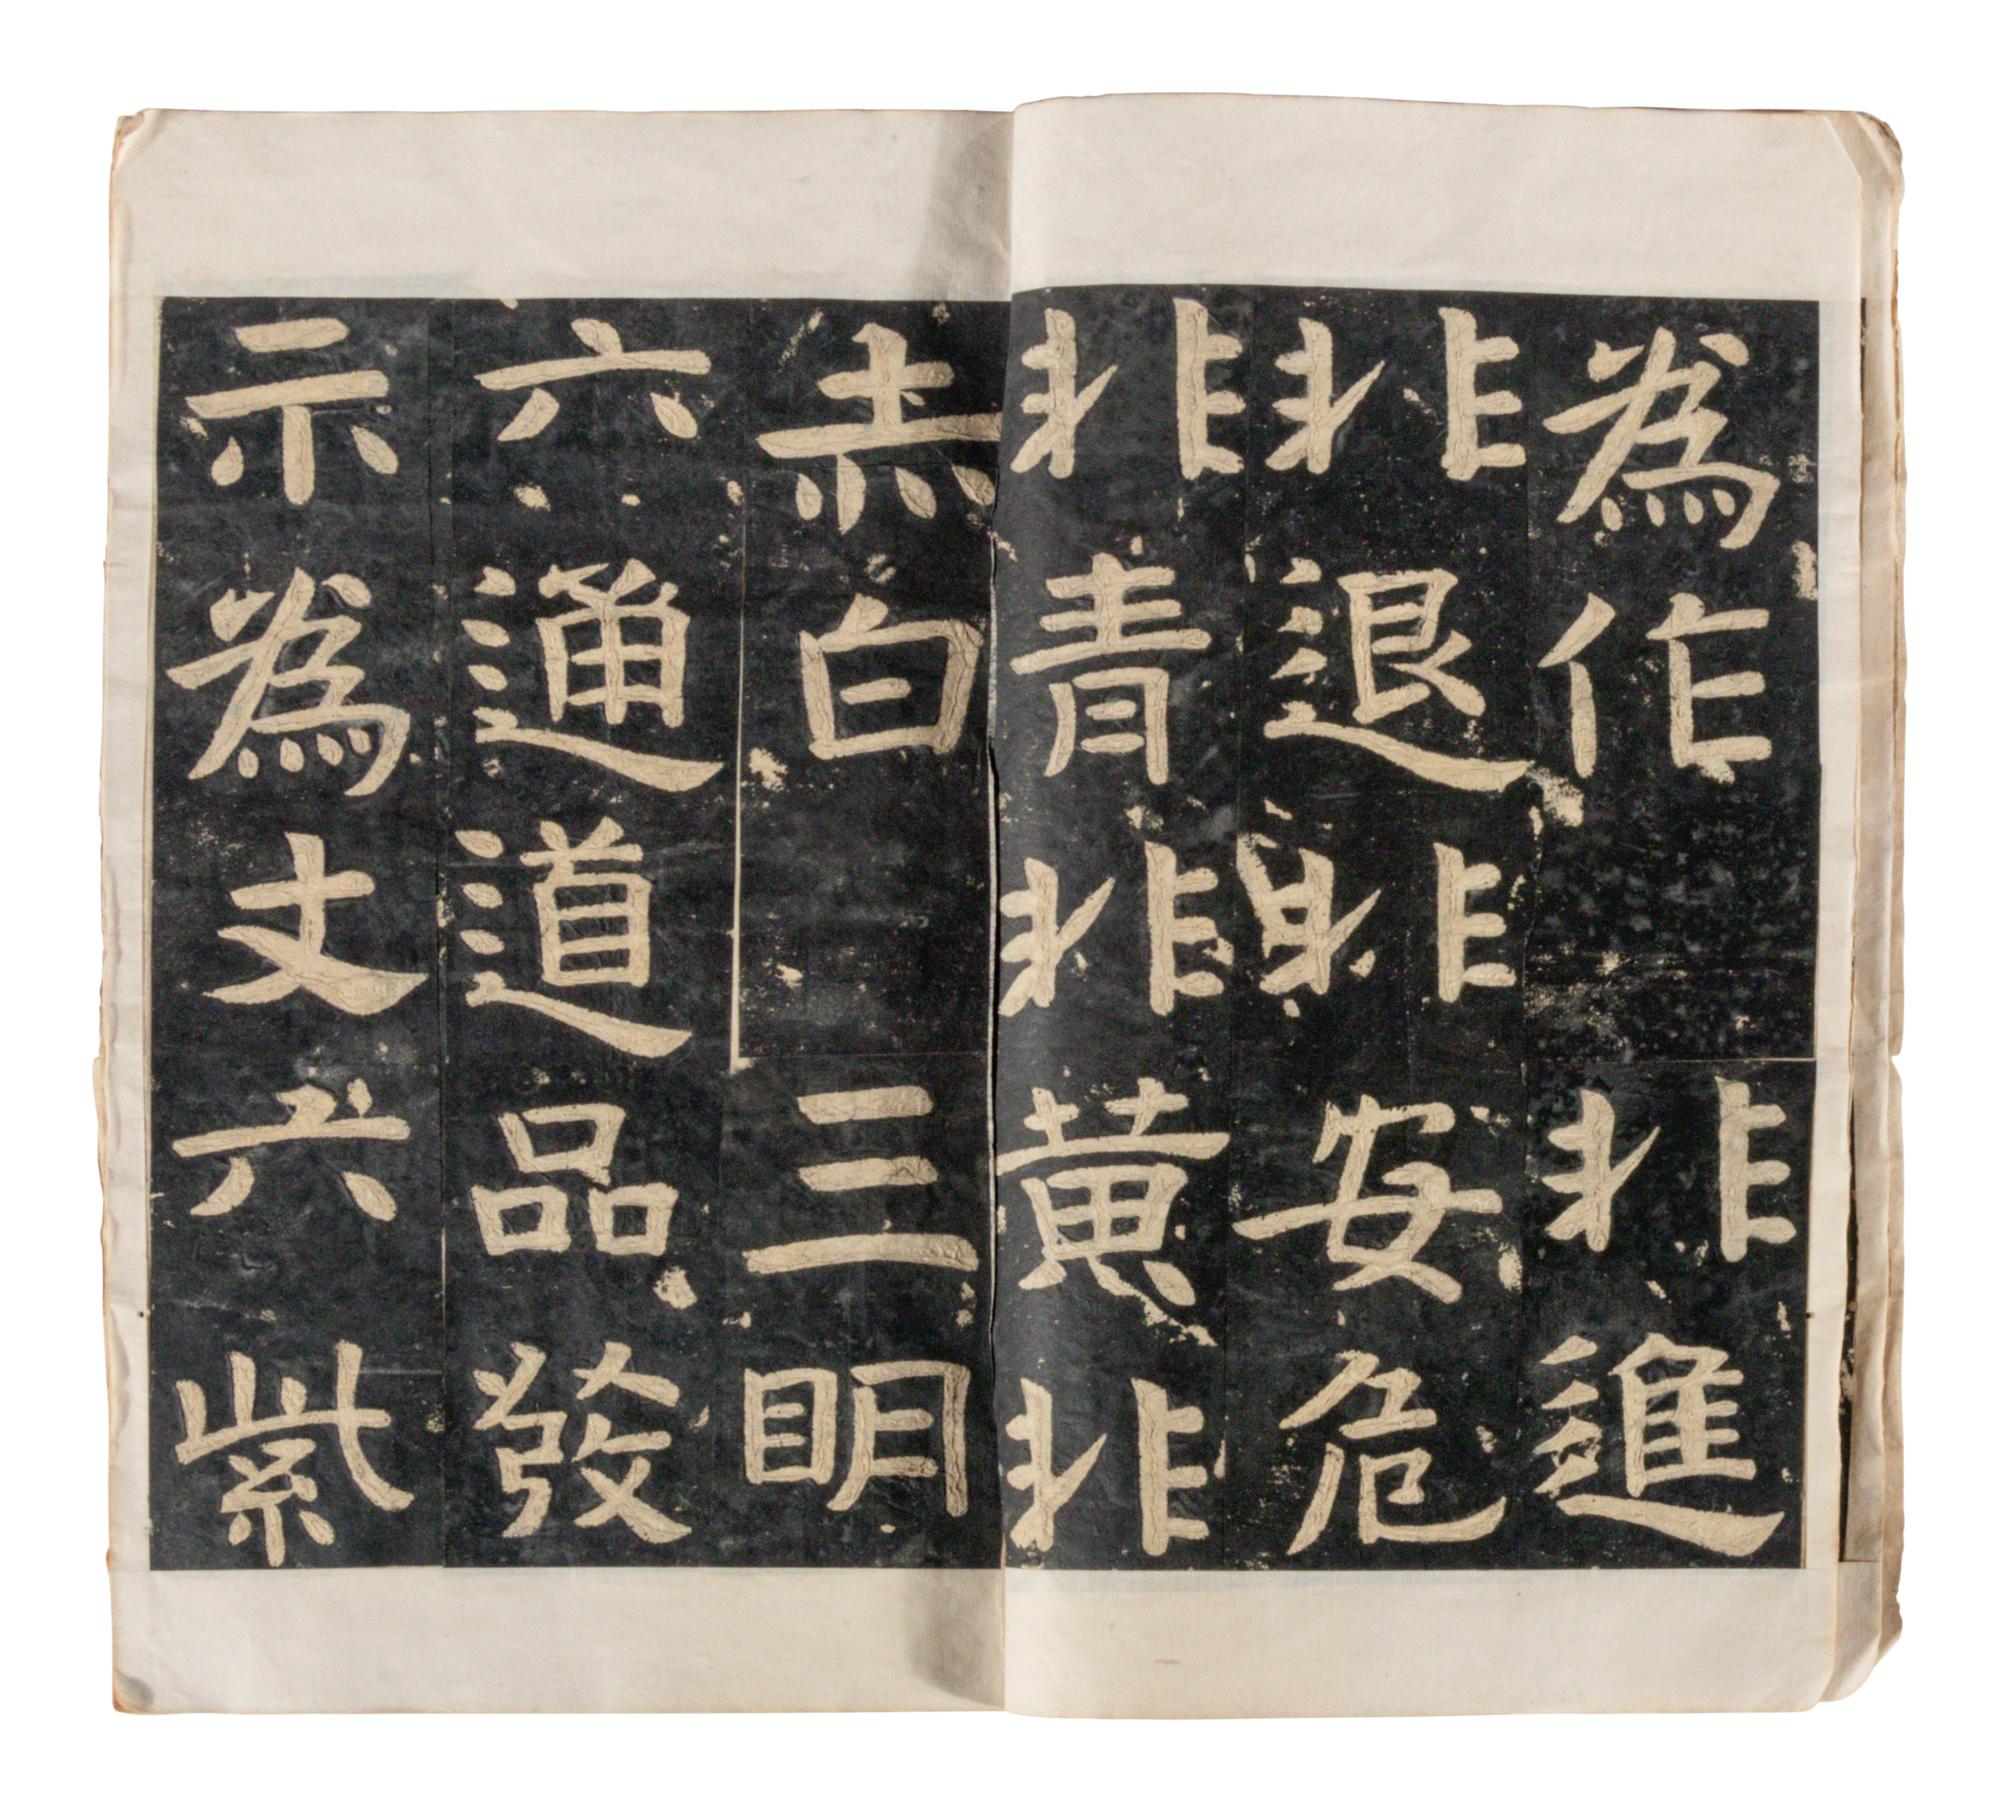 為作非進
非退非安危
非青非黄非
赤白三明
六通道品發
示為丈六紫